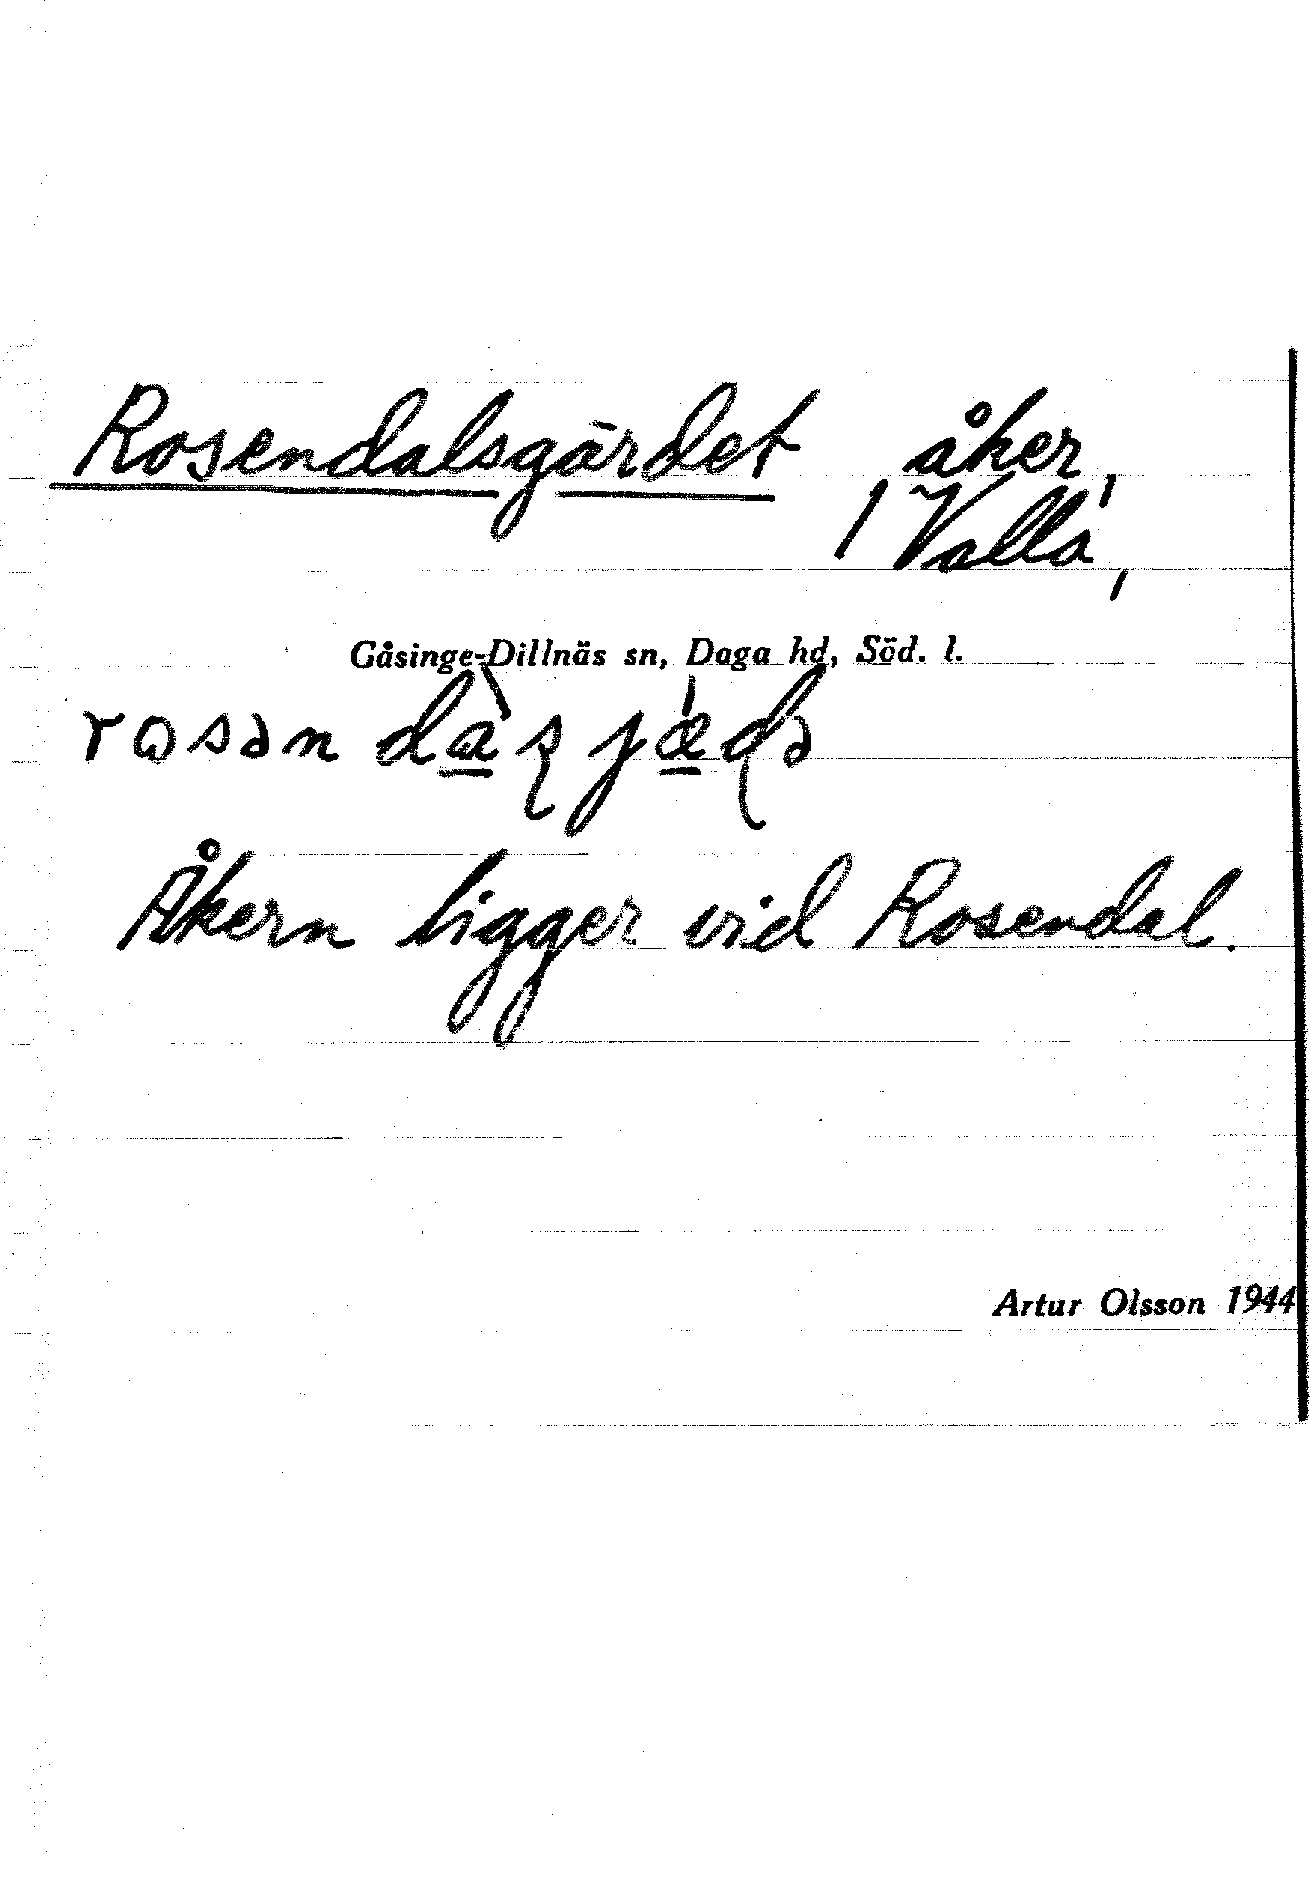 Rosendalsgärdet åker,
1 Valla,
Gåsinge-Dillnäs sn, Daga hd, Söd. l.
Åkern ligger vid Rosendal.
Artur Olsson 1944